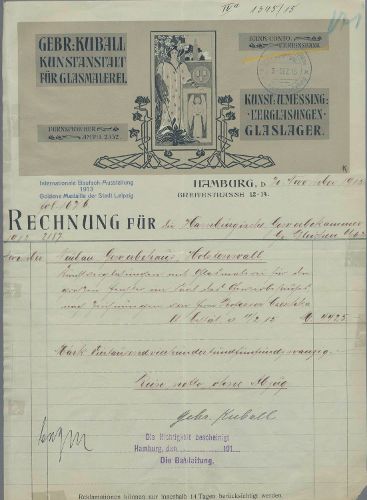 IV a 1345/15
GEBR: KUBALL
KUNSTANSTALT
FÜR GLASMALEREI.
BANK-CONTO:
VEREINSBANK.
FERNSPRECHER
AMT II. 2352.
KUNST: U. MESSING:
VERGLASUNGEN
GLASLAGER.
Internationale Baufach-Ausstellung
1913
Goldene Medaille der Stadt Leipzig
HAMBURG, D. November 19
BREITESTRASSE 12-14.
RECHNUNG FÜR die Hamburgische Gewerbekammer
Neubau Gewerbehaus, Holstenwall
Kunstverglasungen mit Glasmalerei für den
großen Fenster im Saal des Gewerbehauses
nach Zeichnungen von Herrn Professor Czeschka
M 4425
Mark Viertausendvierhundertundfünfundzwanzig.
netto ohne Abzug
Gebr. Kuball
Die Richtigkeit bescheinigt
Hamburg, den 191
Die Bauleitung.
Reklamationen können nur innerhalb 14 Tagen berücksichtigt werden.